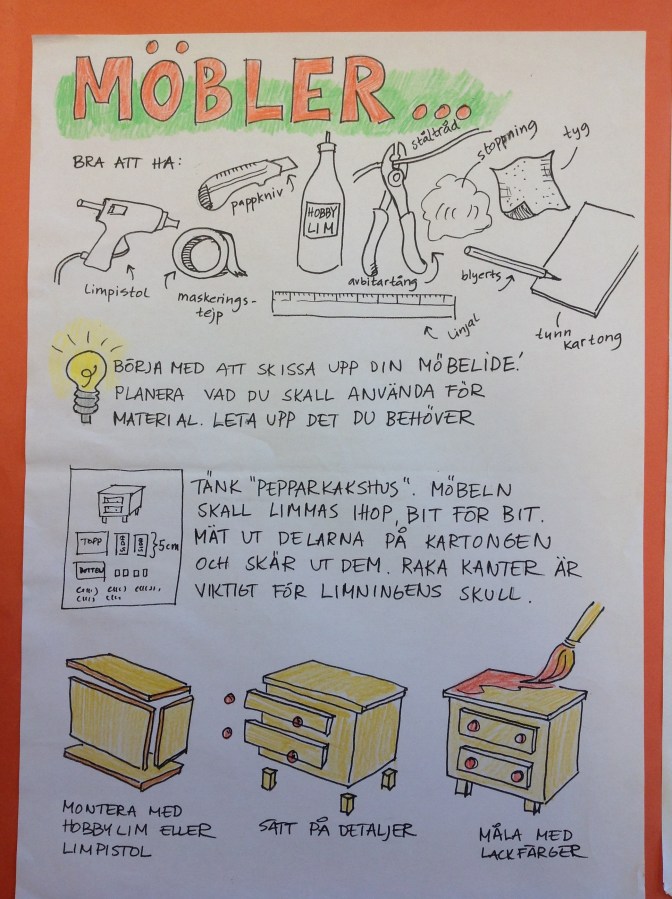 MÖBLER...
BRA ATT HA:
pappkniv
HOBBY
LIM
ståltråd
stoppning
tyg
Limpistol
maskerings-
tejp
avbitartång
blyerts
linjal
tunn
kartong
BÖRJA MED ATT SKISSA UPP DIN MÖBELIDÉ!
PLANERA VAD DU SKALL ANVÄNDA FÖR
MATERIAL. LETA UPP DET DU BEHÖVER
TÄNK "PEPPARKAKSHUS". MÖBELN
SKALL LIMMAS IHOP, BIT FÖR BIT.
MÄT UT DELARNA PÅ KARTONGEN
OCH SKÄR UT DEM. RAKA KANTER ÄR
VIKTIGT FÖR LIMNINGENS SKULL.
TOPP
5cm
BOTTEN
MONTERA MED
HOBBYLIM ELLER
LIMPISTOL
SÄTT PÅ DETALJER
MÅLA MED
LACKFÄRGER